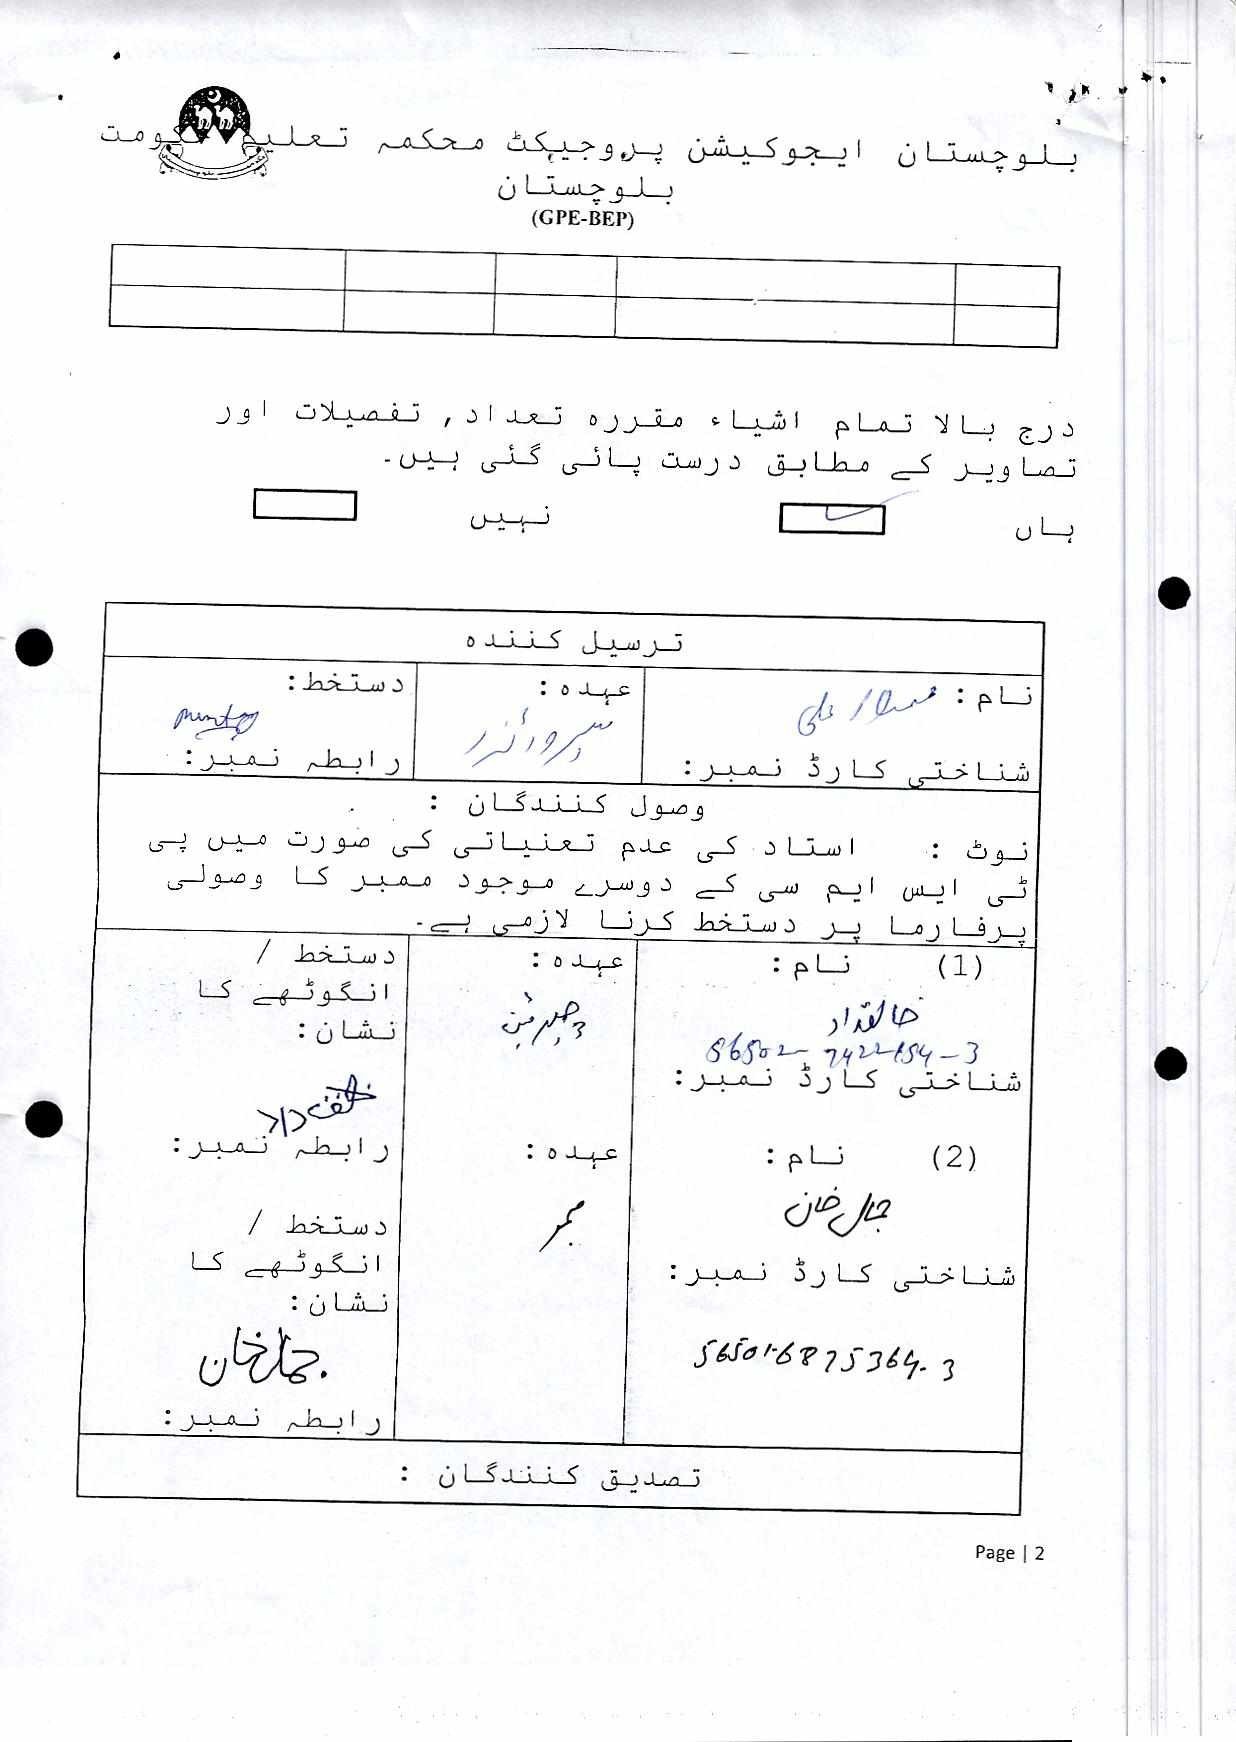 بلوچستان ایجوکیشن پروجیکٹ محکمہ تعلیم حکومت
بلوچستان
(GPE-BEP)
درج بالا تمام اشیاء مقررہ تعداد, تفصیلات اور
تصاویر کے مطابق درست پائی گئی ہیں۔
ہاں نہیں
ترسیل کنندہ
نام : علی عہدہ : دستخط:
سپروائزر
شناختی کارڈ نمبر: رابطہ نمبر:
وصول کنندگان :
نوٹ : استاد کی عدم تعنیاتی کی صورت میں پی
ٹی ایس ایم سی کے دوسرے موجود ممبر کا وصولی
پرفارما پر دستخط کرنا لازمی ہے۔
(1) نام : عہدہ : دستخط /
انگوٹھے کا
نشان :
خالقداد چیرمین
56502-7422154-3
شناختی کارڈ نمبر:
رابطہ نمبر:
(2) نام : عہدہ :
خان ممبر
دستخط /
انگوٹھے کا
نشان :
شناختی کارڈ نمبر:
56501-6875364-3
خان
رابطہ نمبر:
تصدیق کنندگان :
Page | 2